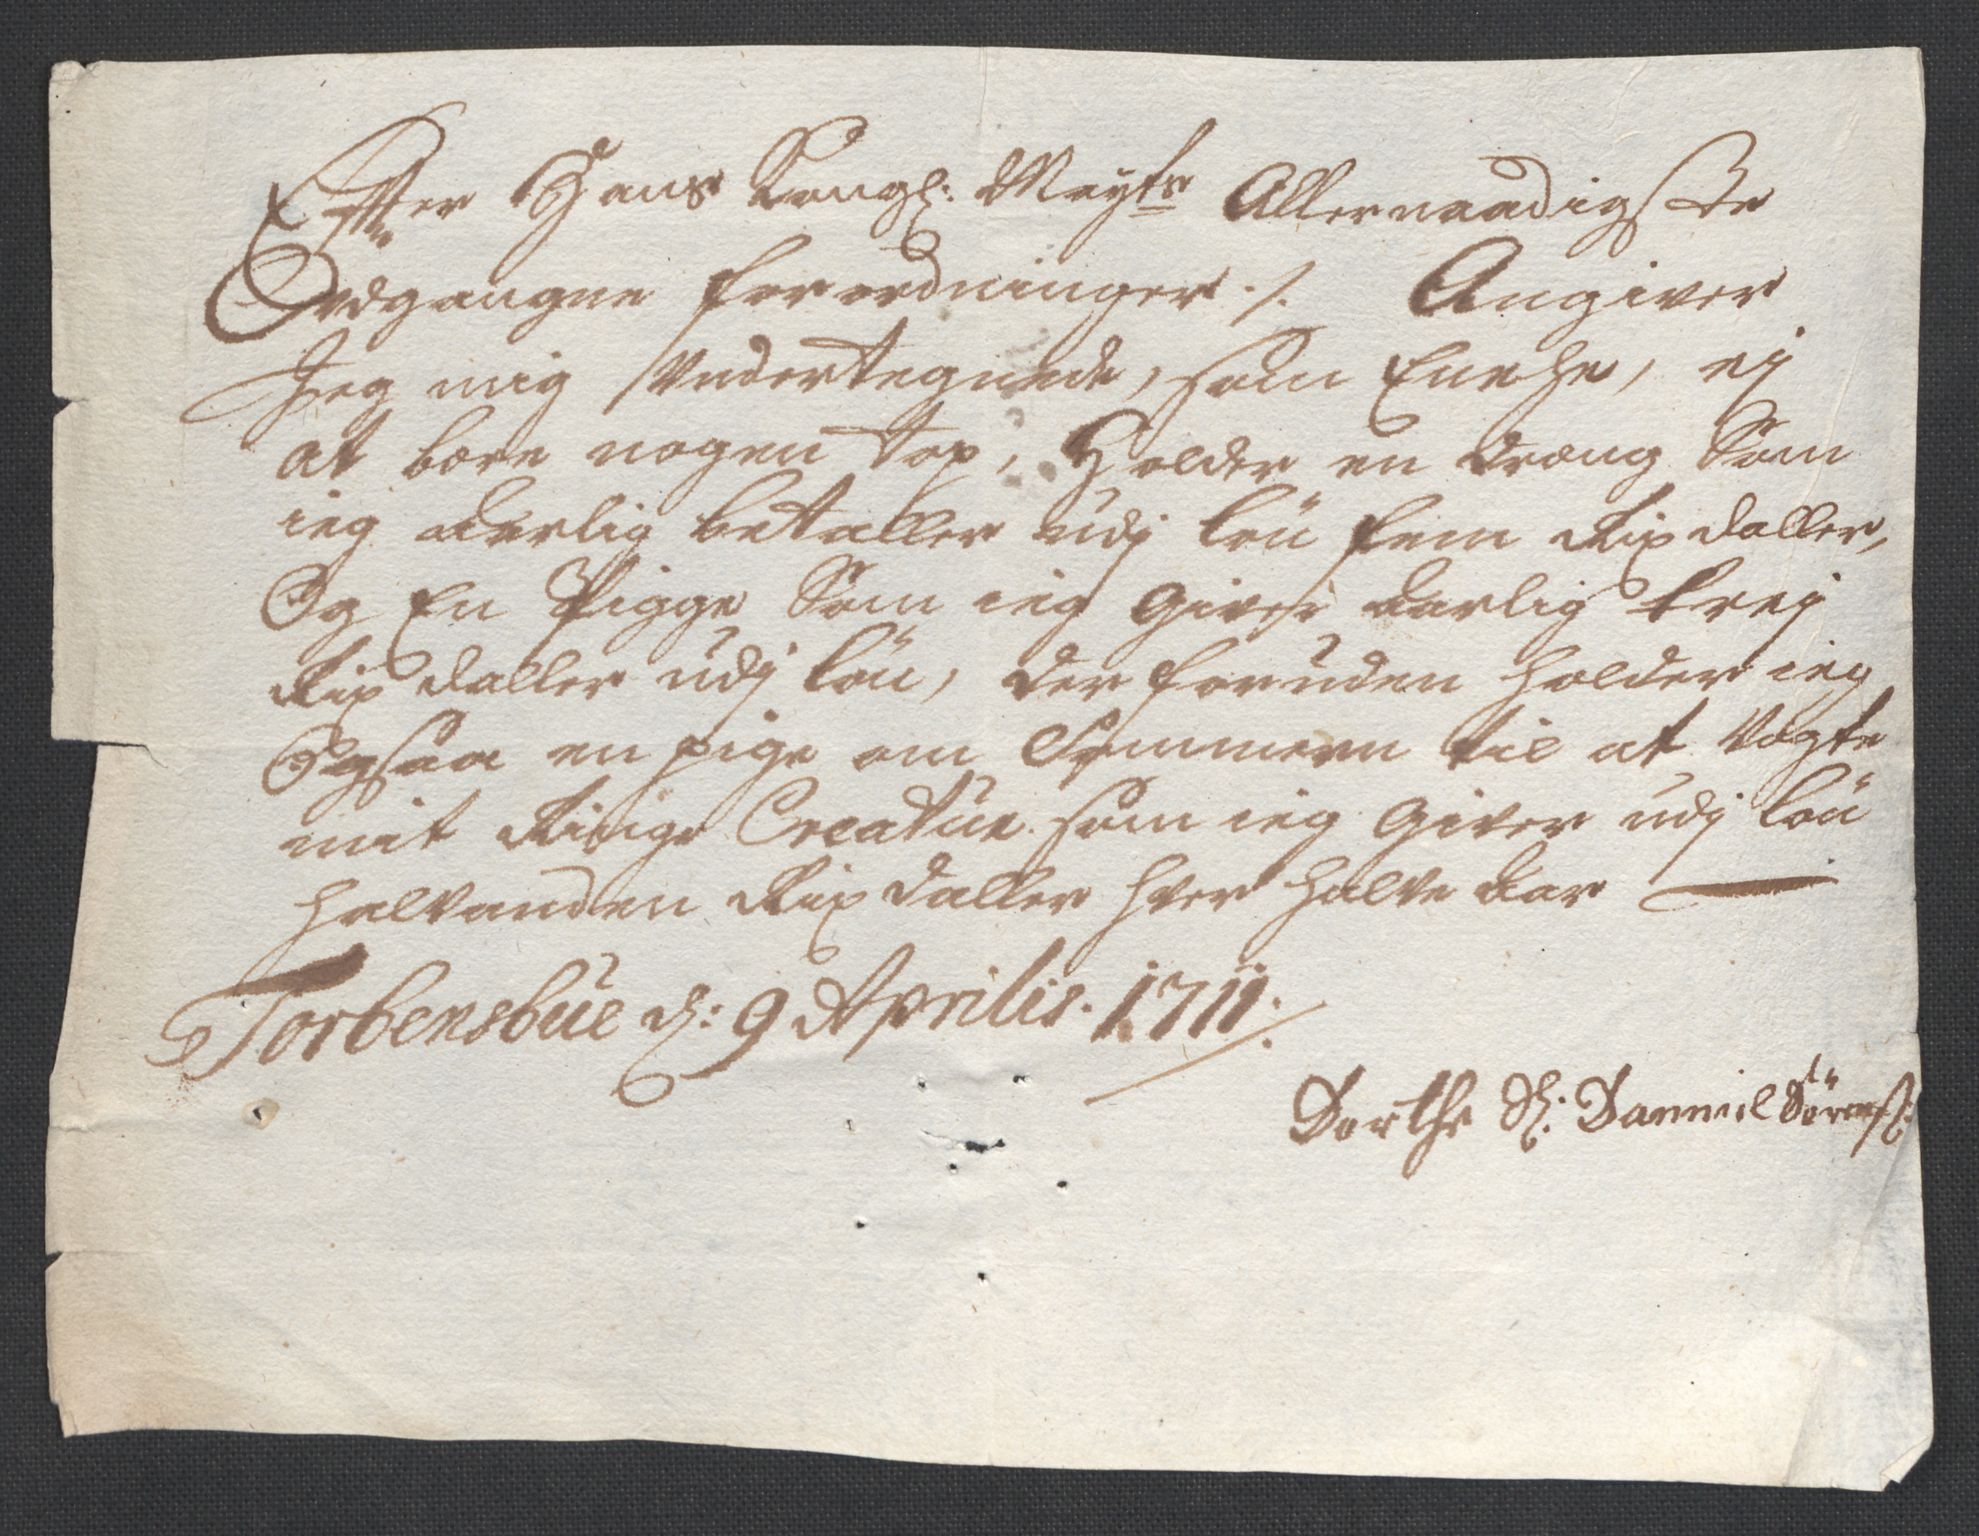 Effter Hans Kongl: Mayts Allernaadigste
Udgangne forordninger ./. Angiver
Jeg mig Undertegnede, som Encke, ej
at bære nogen top, Holder en dreng Som
ieg aarlig betaller udj lön fem Rix daller,
Og En Pigge Som ieg Giver aarlig trej
Rix daller udj lön, der foruden holder ieg
Ogsaa en pige om Sommern til at Vogte
mit Ringe Creatür som ieg Giver udj lön
halvanden Rix daller hver halve Aar
Torbensbüe d: 9 Aprilis. 1711.
Dorthe Sl: Danniel Sörensl: